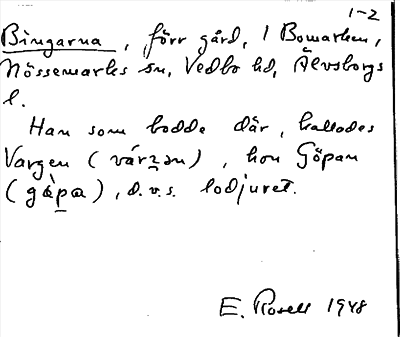 1-2
Bingarna, förr gård, i Bomarken,
Nössemarks sn, Vedbo hd, Älvsborgs
l.
Han som bodde där, kallades
Vargen (várɜən), hon Göpan
(gǿpa), d.v.s. lodjuret.
E. Rosell 1948